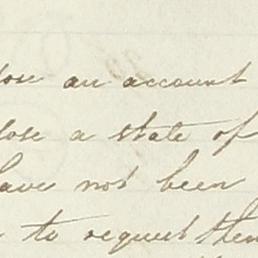 lose an account
lose a state of
have not been
to request them